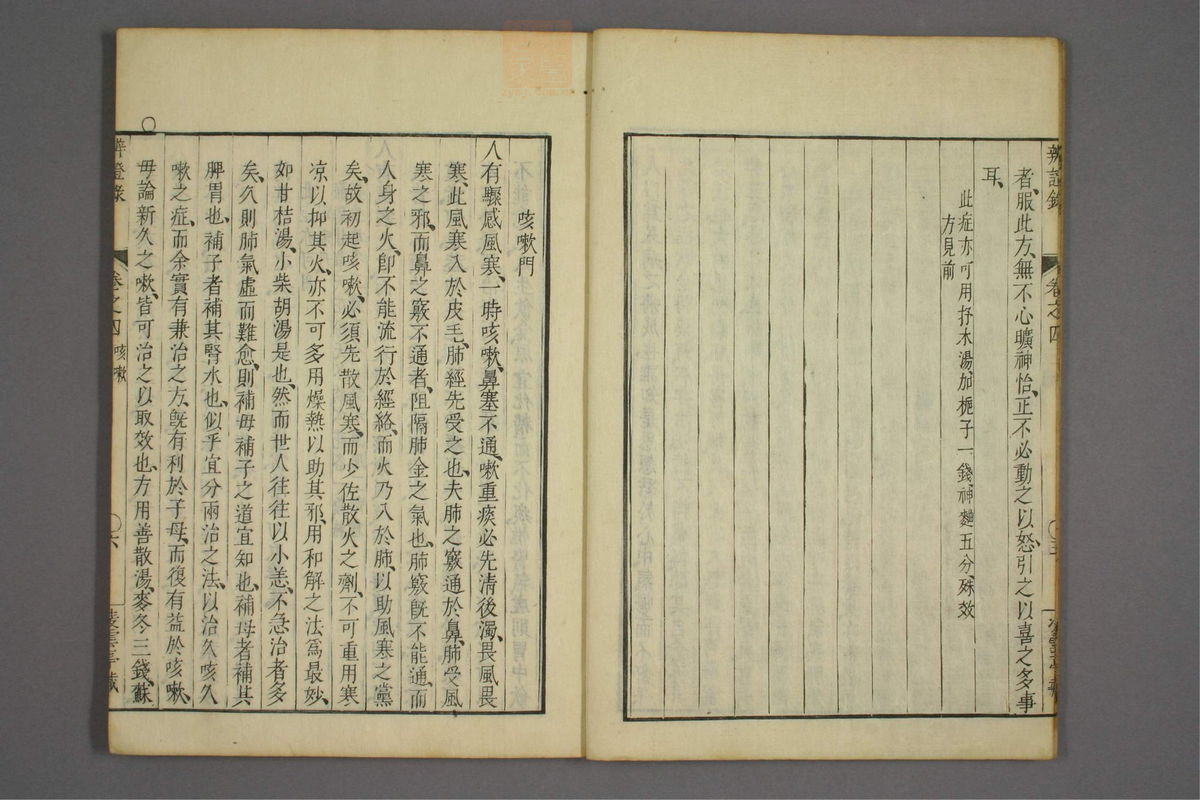 者、服此方、無不心曠神怡、正不必動之以怒、引之以喜之多事
耳、
此症亦可用抒木湯加梔子一錢神麯五分、殊效
方見前
咳嗽門
人有驟感風寒、一時咳嗽、鼻塞不通、嗽重痰必先清後濁、畏風畏
寒、此風寒入於皮毛、肺經先受之也、夫肺之竅通於鼻、肺受風
寒之邪、而鼻之竅不通者、阻隔肺金之氣也、肺竅旣不能通、而
人身之火、卽不能流行於經絡、而火乃入於肺、以助風寒之黨
矣、故初起咳嗽、必須先散風寒、而少佐散火之劑、不可重用寒
凉以抑其火、亦不可多用燥熱以助其邪、用和解之法爲最妙、
如甘桔湯、小柴胡湯是也、然而世人往往以小恙、不急治者多
矣、久則肺氣虛而難愈、則補母補子之道宜知也、補母者補其
脾胃也、補子者補其腎水也、似乎宜分兩治之法、以治久咳久
嗽之症、而余實有兼治之方、旣有利於子母、而復有益於咳嗽、
毋論新久之嗽、皆可治之以取效也、方用善散湯、麥冬三錢、蘇
辨證錄
卷之四 咳嗽